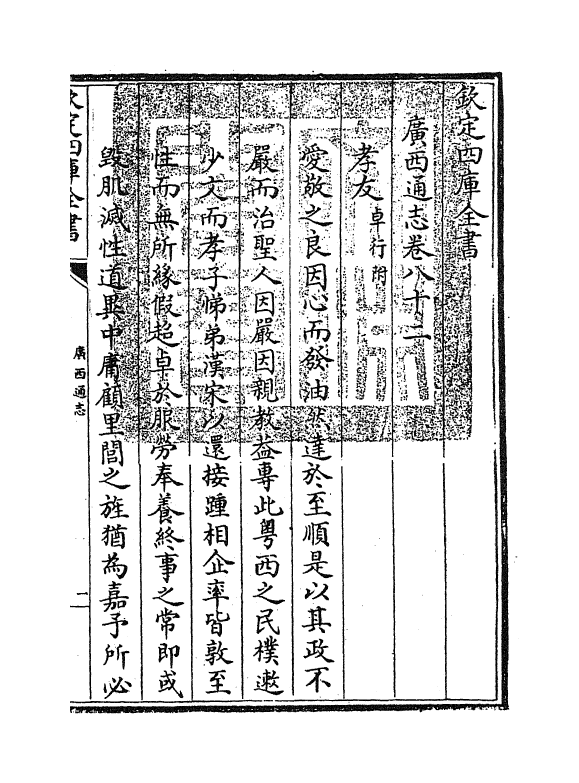 欽定四庫全書
廣西通志卷八十二
孝友卓行附
愛敬之良因心而發油然達於至順是以其政不
嚴而治聖人因嚴因親教益專此粤西之民樸遬
少文而孝子悌弟漢宋以還接踵相企率皆敦至
性而無所緣假超卓於服勞奉養終事之常即或
毀肌滅性道異中庸顧里閭之旌猶為嘉予所必
欽定四庫全書
廣西通志
一